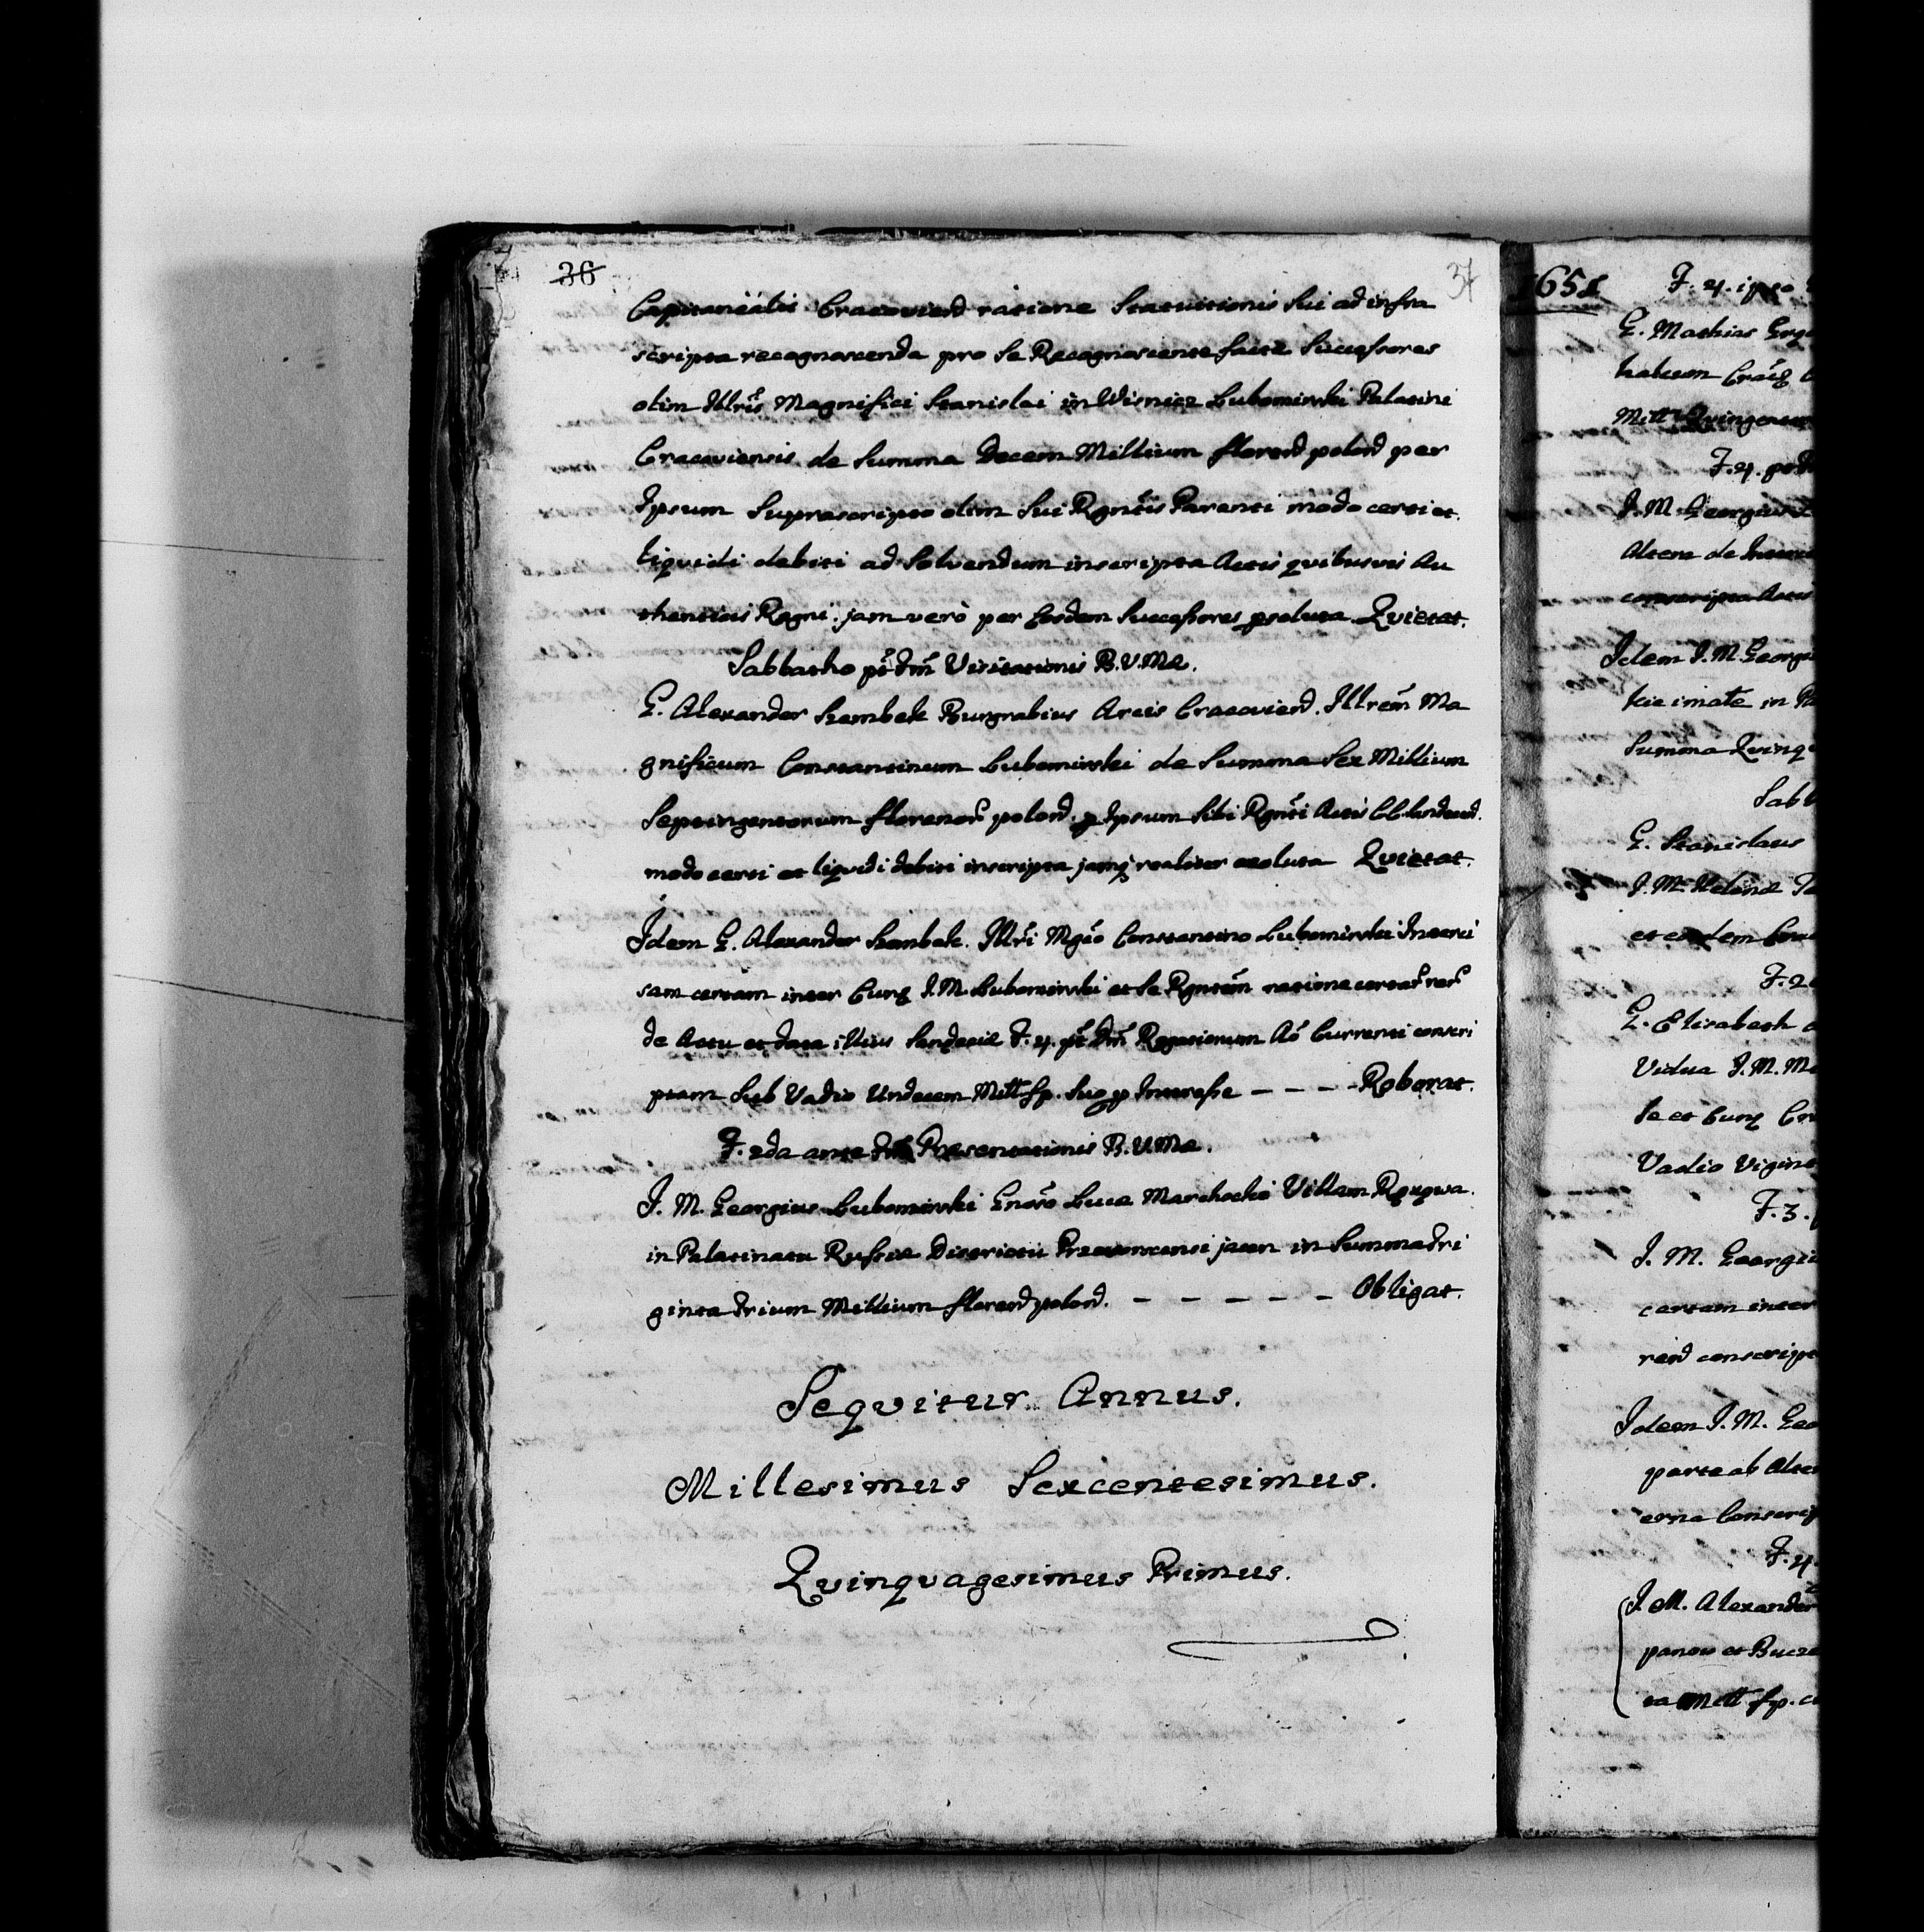 36
37
Capitanealis Cracoviens ratione Statuitionis sui ad infra
scripta recognoscenda pro se Recognoscente facte Successores
olim Illris Magnifici Stanislai in Wisnicz Lubomirski Palatini
Cracoviensis de Summa Decem Millium floren polon per
Ipsum Suprascripto olim Sui Rgntis Parenti modo certi et
liqvidi debiti ad Solvendum inscripta Actis qvibusvis Au
thenticis Regni jam verò per Eosdem Successores persoluta Qvietat.
Sabbatho pt Dm Visitationis B.V.Mae.
G. Alexander Szembek Burgrabius Arcis Cracovien. Illrem Ma
gnificum Constantinum Lubomirski de Summa Sex Millium
Septingentorum florenor polon. p Ipsum Sibi Rgnti Actis CC Sandecen.
modo certi et liqvidi debiti inscripta jamq realiter exoluta Qvietat.
Idem G. Alexander Szembek. Illri Mgco Constantino Lubomirski Interci
sam certam inter Eunq I.M. Lubomirski et Se Rgntem ratione certar rer
de Actu et data illius Sandeciæ F. 4. pt Dm Rogationum Ao Currenti conscri
ptam Sub Vadio Undecem Mill fp. Suo p Interesse – – – – Roborat.
F. 2da ante Præsentationis B.V.Mae.
I. M. Georgius Lubomirski Gnoso Luca Marchocki Villam
in Palatinatu Russiæ Districtu jacen in Summa Tri
ginta Trium Millium floren polon. – – – – – Obligat.
Seqvitur Annus.
Millesimus Sexcentesimus.
Qvinqvagesimus Primus.
1651
F. 4. ipso
G. Mathias
Mill Qvingentor
F. 4.
I. M. Georgius
Altera de
conscripta Actis
Idem I. M. Georgi
in
Summa Qvinq
Sabb
G. Stanislaus
I. M. Helenæ
et eodem
F. 2
G. Elisabeth
Vidua I. M.
Se et Eunq
Vadio Vigint
F. 3.
I. M. Georgi
certam inter
conscript
Idem I. M. Geo
parte ab Alter
erna Conscrip
F. 4.
I. M. Alexander
panow et
Mill fp.